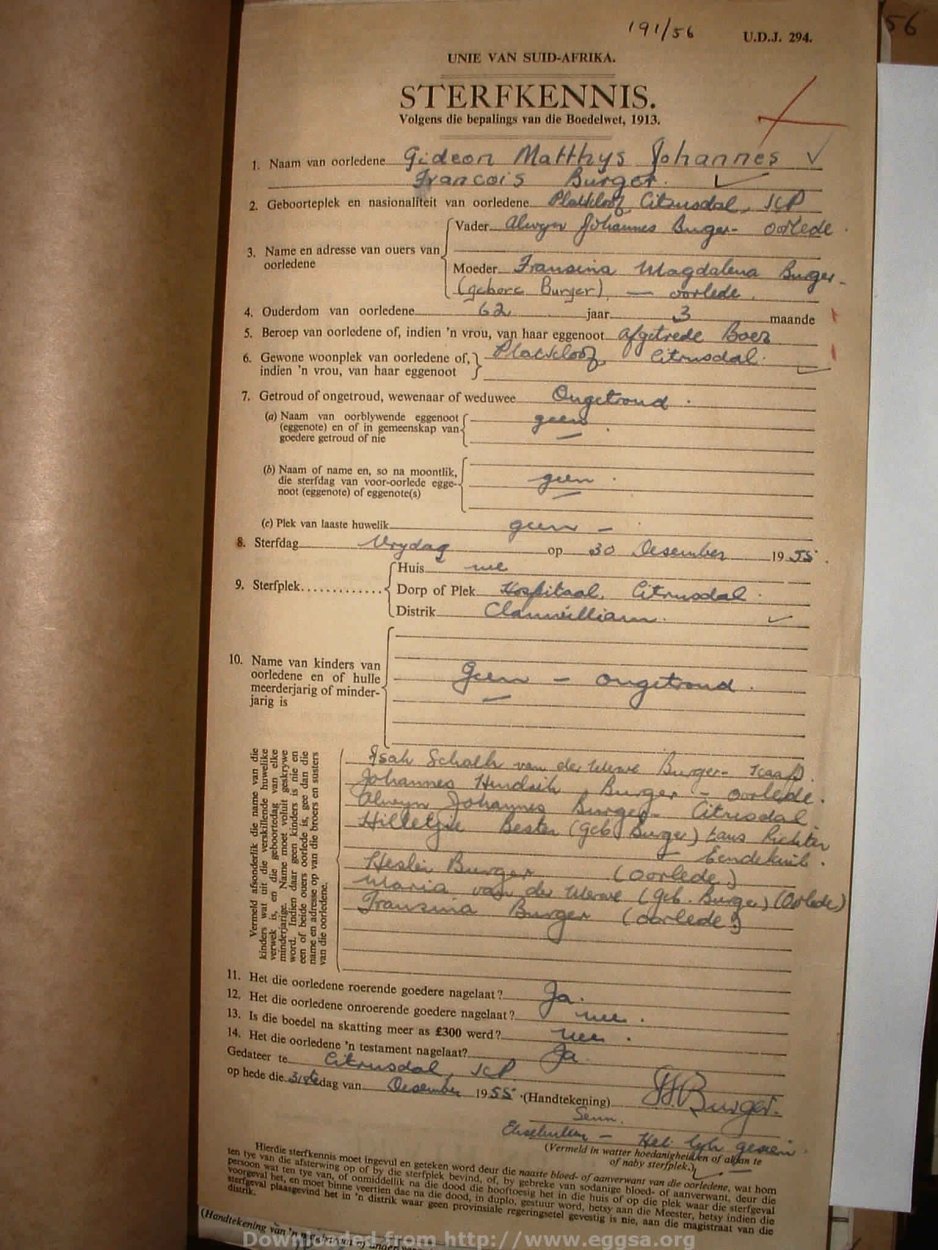 191/56
56
U.D.J. 294.
UNIE VAN SUID-AFRIKA.
STERFKENNIS.
Volgens die bepalings van die Boedelwet, 1913.
1. Naam van oorledene Gideon Matthys Johannes
Francois Burger.
2. Geboorteplek en nasionaliteit van oorledene Citrusdal, KP
3. Name en adresse van ouers van oorledene
Vader Alwyn Johannes Burger - oorlede.
Moeder Fransina Magdalena Burger
(gebore Burger) — oorlede.
4. Ouderdom van oorledene 62 jaar 3 maande
5. Beroep van oorledene of, indien 'n vrou, van haar eggenoot Afgetrede Boer
6. Gewone woonplek van oorledene of, indien 'n vrou, van haar eggenoot Citrusdal.
7. Getroud of ongetroud, wewenaar of weduwee Ongetroud.
(a) Naam van oorblywende eggenoot (eggenote) en of in gemeenskap van goedere getroud of nie geen.
(b) Naam of name en, so na moontlik, die sterfdag van voor-oorlede eggenoot (eggenote) of eggenote(s) geen.
(c) Plek van laaste huwelik geen -
8. Sterfdag Vrydag op 30 Desember 1955.
9. Sterfplek
Huis nee
Dorp of Plek Hospitaal, Citrusdal.
Distrik Clanwilliam.
10. Name van kinders van oorledene en of hulle meerderjarig of minderjarig is
Geen - ongetroud.
Vermeld afsonderlik die name van die
kinders wat uit die verskillende huwelike
verwek is, en die geboortedag van elke
minderjarige. Name moet voluit geskrywe
word. Indien daar geen kinders is nie en
een of beide ouers oorlede is, gee dan die
name en adresse op van die broers en susters
van die oorledene.
Isak Schalk van der Merwe Burger - Kaap.
Johannes Hendrik Burger - oorlede.
Alwyn Johannes Burger - Citrusdal.
Hilletjie Bester (geb. Burger) tans Richter
Eendekuil.
Hester Burger (oorlede)
Maria van der Merwe (geb. Burger) (Oorlede)
Fransina Burger (oorlede)
11. Het die oorledene roerende goedere nagelaat? Ja.
12. Het die oorledene onroerende goedere nagelaat? nee.
13. Is die boedel na skatting meer as £300 werd? nee.
14. Het die oorledene 'n testament nagelaat? Ja
Gedateer te Citrusdal, KP
op hede die 31ste dag van Desember 1955. (Handtekening) Burger.
Seun.
- Het lyk gesien.
(Vermeld in watter hoedanigheid en of al dan te
of naby sterfplek.)
Hierdie sterfkennis moet ingevul en geteken word deur die naaste bloed- of aanverwant van die oorledene, wat hom
ten tye van die afsterwing op of by die sterfplek bevind, of, by gebreke van sodanige bloed- of aanverwant, deur die
persoon wat ten tye van, of onmiddellik na die dood die hooftoesig het in die huis of op die plek waar die sterfgeval
voorgeval het, en moet binne veertien dae na die dood, in duplo, gestuur word, hetsy aan die Meester, hetsy indien die
sterfgeval plaasgevind het in 'n distrik waar geen provinsiale regeringsetel gevestig is nie, aan die magistraat van die
distrik.
(Handtekening van 'n
Downloaded from http://www.eggsa.org